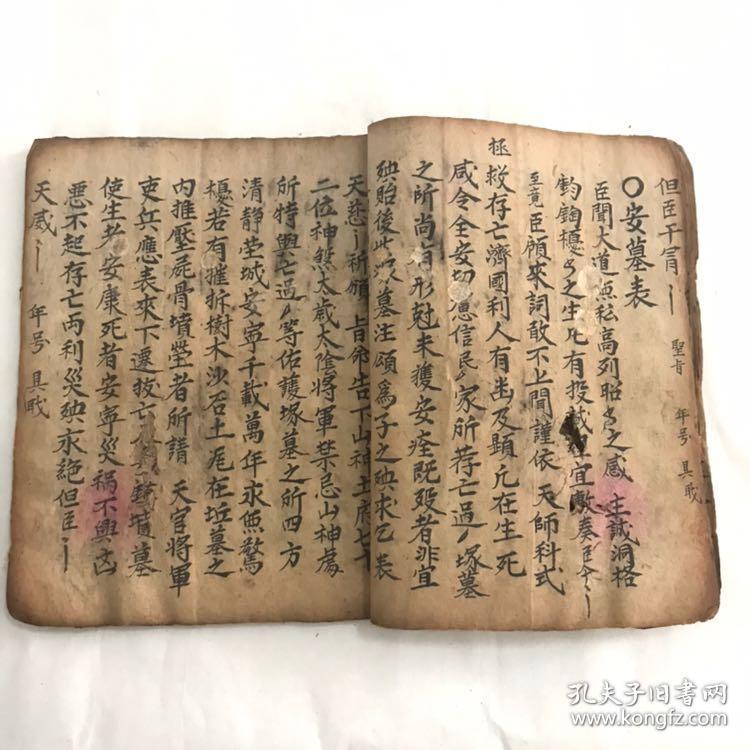 但臣干冒〻 聖旨 年号 具戢
〇安墓表
臣聞大道無私高列昭〻之感 生誠洞格
〻之生凡有投 宜敷奏臣今〻
至竟臣願來詞敢不上聞謹依 天師科式
拯救存亡濟國利人有幽及顯凡在生死
咸令全安切 信民〻家所荐亡過〻塚墓
之所尚有形尅未獲安痊既殁者非宜
殃貽後 墓注頌為子之殃求乞表
天慈〻祈頒 上旨命告下山神土府七十
二位神煞太歲太陰將軍禁忌山神為
所特與亡過〻等佑護塚墓之所四方
清静茔城安寧千載萬年永無驚
擾若有摧折樹木沙石土 在坵墓之
内推壓尸骨墳塋者所請 天官將軍
吏兵應表來下遷拔亡 墳墓
使生者安康死者安寧災禍不興凶
惡不起存亡两利災殃永絶但臣〻
天威〻 年号 具戢
孔夫子旧书网
www.kongfz.com